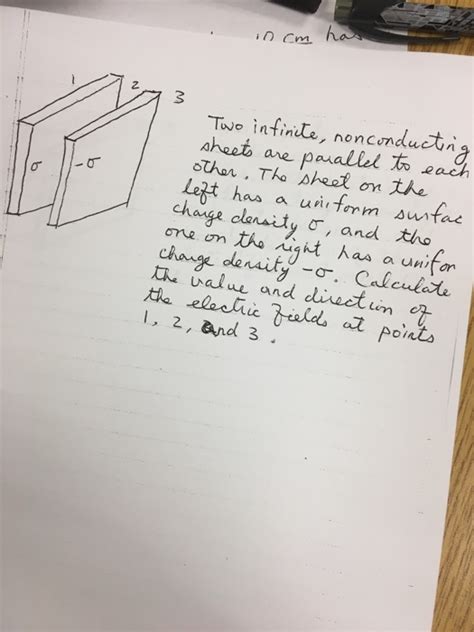 10 cm has
1 2 3
σ -σ
Two infinite, nonconducting
sheets are parallel to each
other. The sheet on the
left has a uniform surfac
charge density σ, and the
one on the right has a unifor
charge density -σ. Calculate
the value and direction of
the electric fields at points
1, 2, and 3.